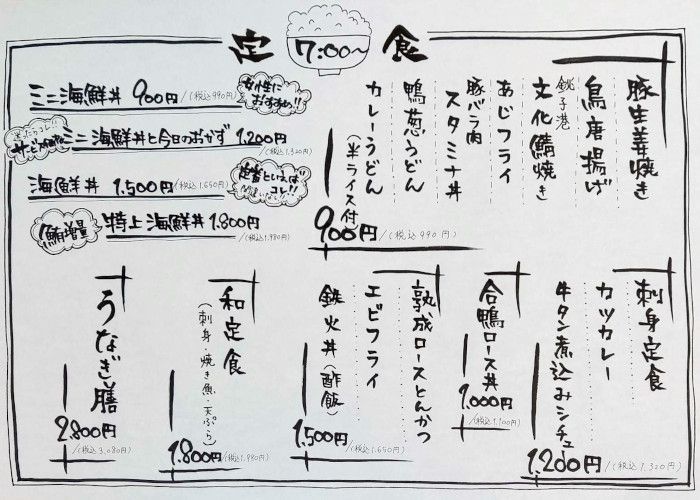 定 7:00~ 食
ミニ海鮮丼 900円/(税込990円)
女性に
おすすめ!!
サービス
ミニ海鮮丼と今日のおかず 1.200円
(税込1.320円)
海鮮丼 1.500円/(税込1.650円)
定食といえば
コレ!!
鮪増量
特上海鮮丼 1.800円
(税込1.980円)
豚生姜焼き
鳥唐揚げ
銚子港
文化鯖焼き
あじフライ
豚バラ肉
スタミナ丼
鴨葱うどん
カレーうどん
(半ライス付)
900円/(税込990円)
刺身定食
カツカレー
牛タン煮込みシチュー
1,200円/(税込1.320円)
合鴨ロース丼
1.000円
(税込1.100円)
熟成ロースとんかつ
エビフライ
鉄火丼(酢飯)
1,500円/(税込1.650円)
和定食
(刺身・焼き魚・天ぷら)
1.800円/(税込1.980円)
うなぎ膳
2.800円
/(税込3.080円)